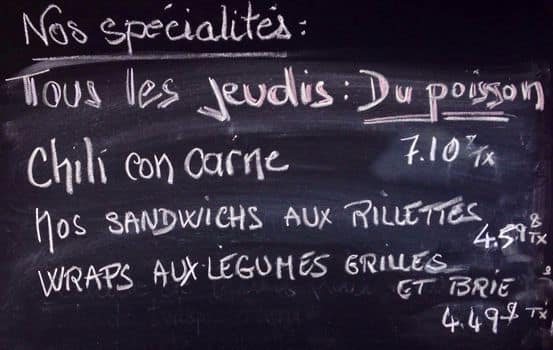 Nos spécialités:
Tous les jeudis: Du poisson
Chili con carne 7.10 $ Tx
Nos SANDWICHS AUX RILLETTES
4.59 $ TX
WRAPS AUX LÉGUMES GRILLES
ET BRIE
4.49 $ TX